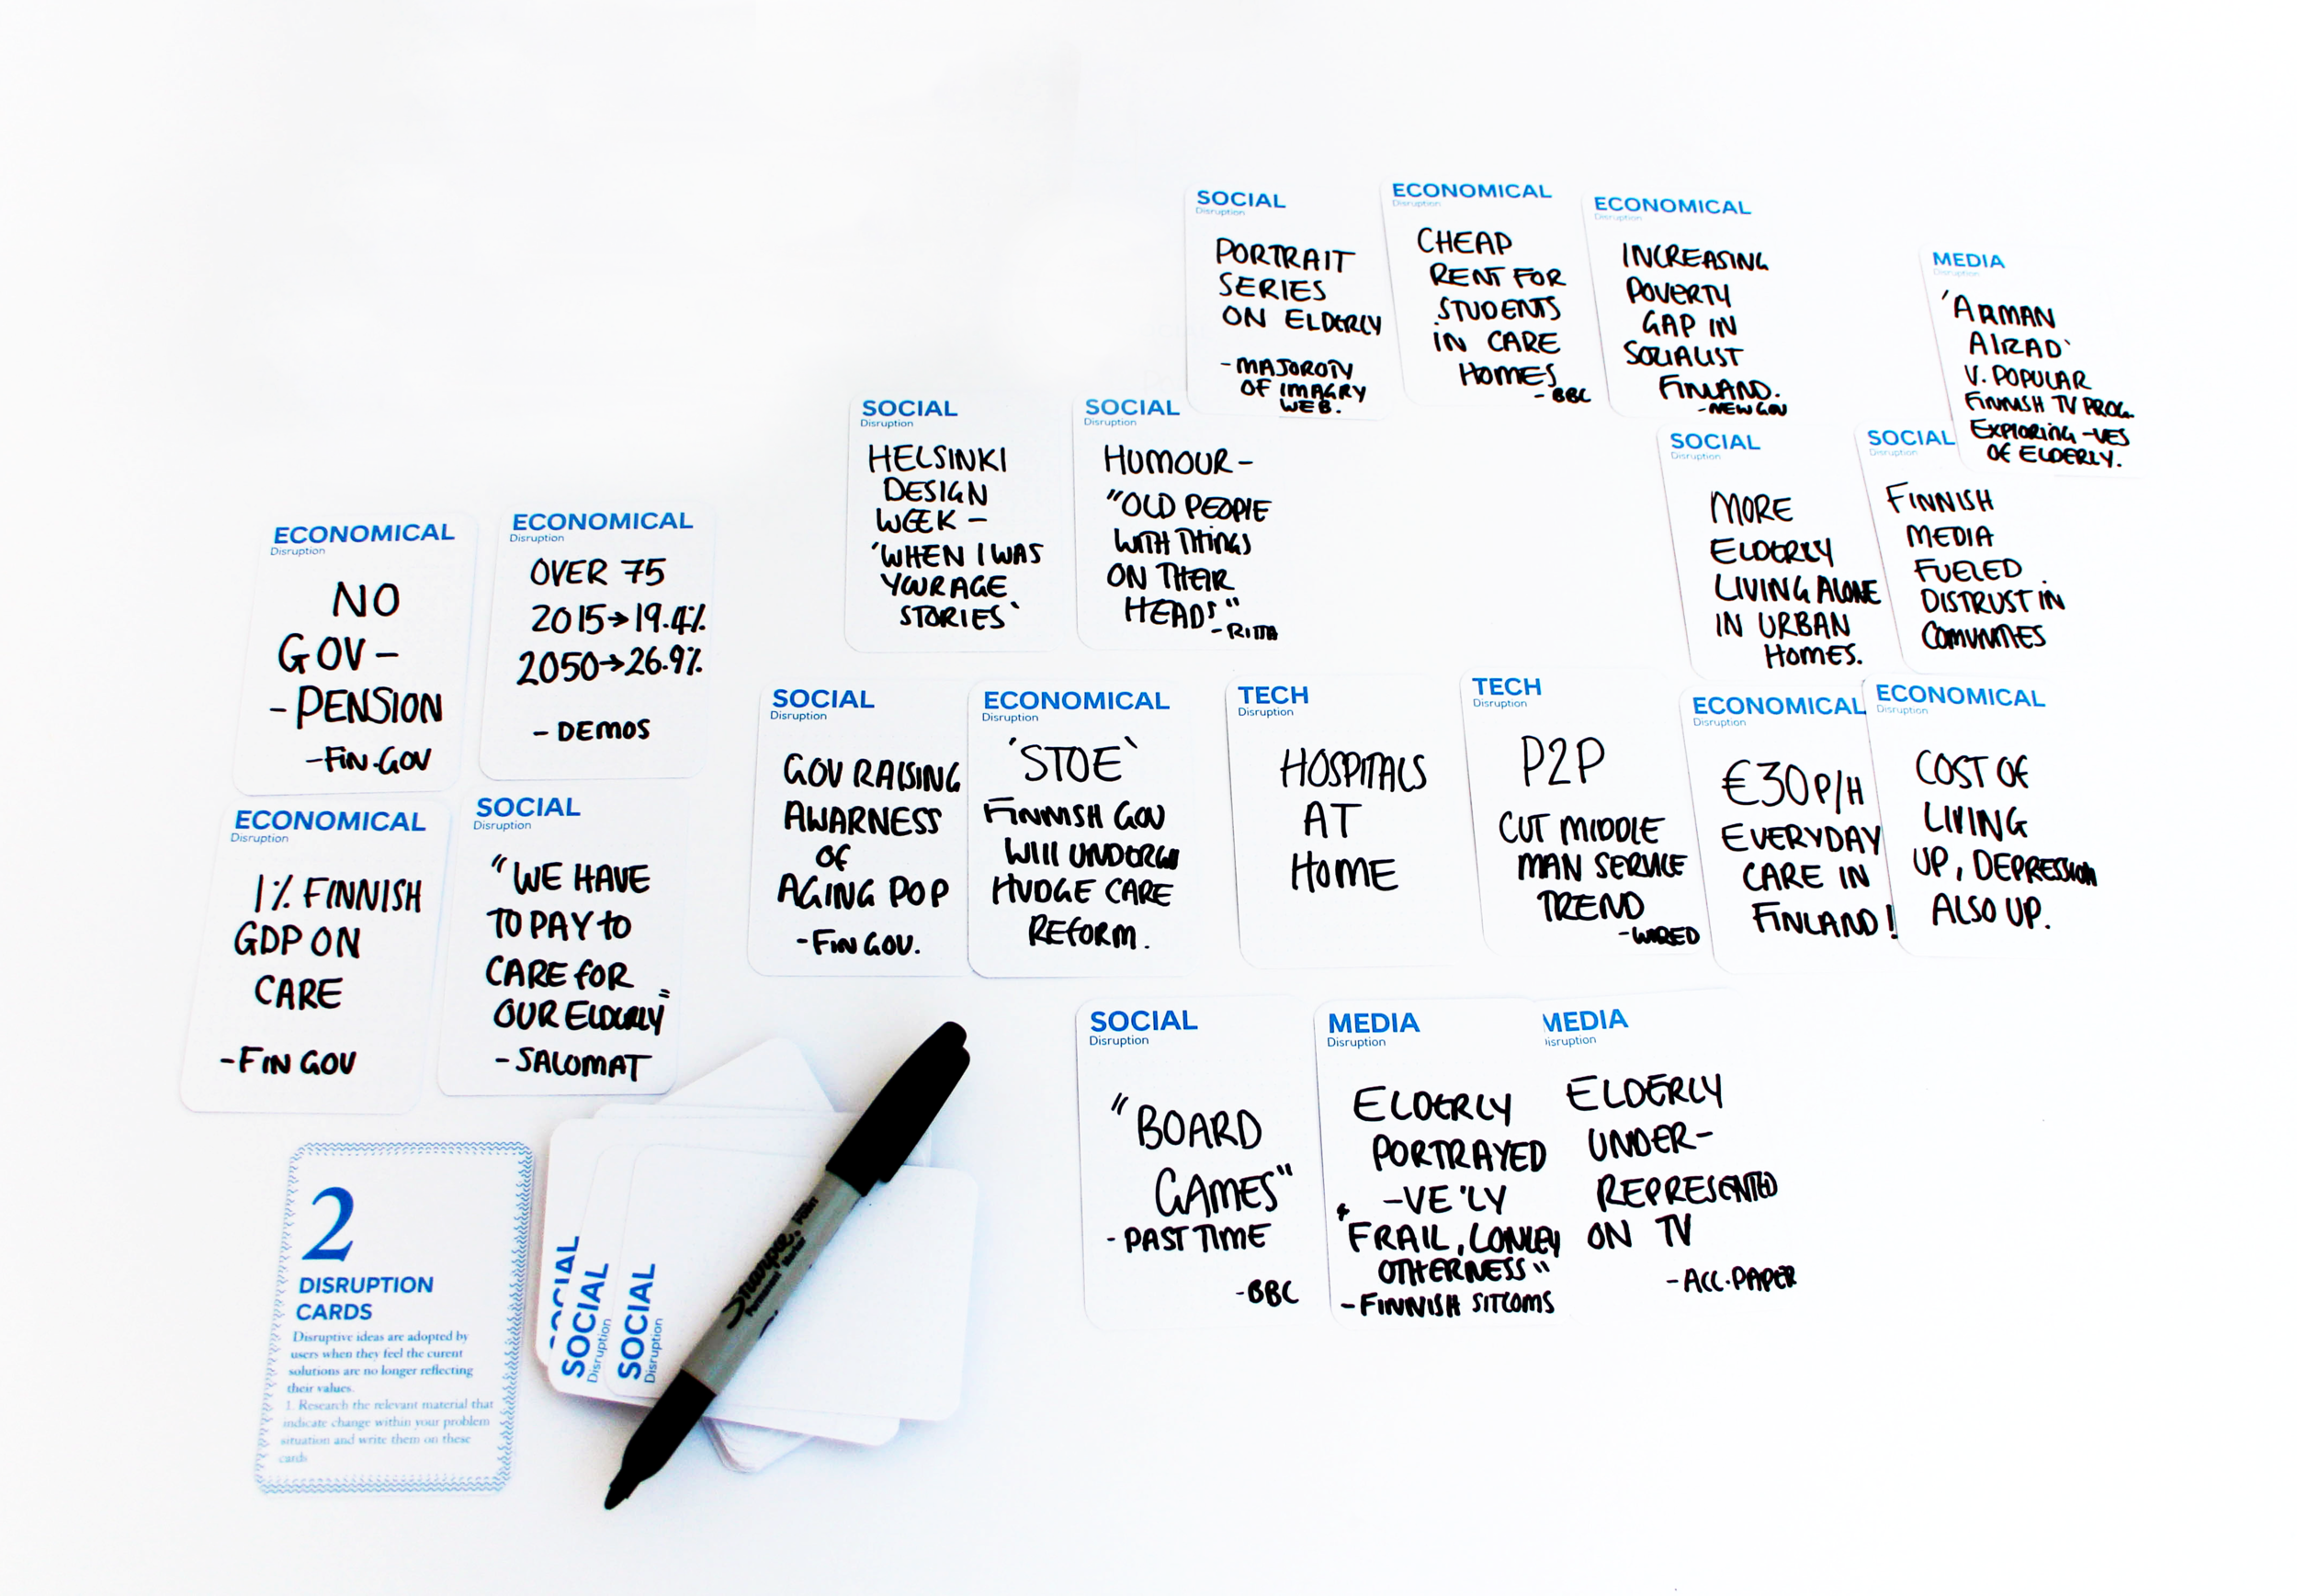 SOCIAL
Disruption
PORTRAIT
SERIES
ON ELDERLY
-MAJOROTY
OF IMAGRY
WEB.
ECONOMICAL
Disruption
CHEAP
RENT FOR
STUDENTS
IN CARE
HOMES
-BBC
ECONOMICAL
Disruption
INCREASING
POVERTY
GAP IN
SOCIALIST
FINLAND.
-NEW GOV
MEDIA
Disruption
'ARMAN
AIRAD'
V. POPULAR
FINNISH TV PROG.
EXPLORING -VES
OF ELDERLY.
SOCIAL
Disruption
HELSINKI
DESIGN
WEEK -
'WHEN I WAS
YOUR AGE
STORIES'
SOCIAL
Disruption
HUMOUR -
"OLD PEOPLE
WITH THINGS
ON THEIR
HEADS"
SOCIAL
Disruption
MORE
ELDERLY
LIVING ALONE
IN URBAN
HOMES.
SOCIAL
Disruption
FINNISH
MEDIA
FUELED
DISTRUST IN
ECONOMICAL
Disruption
NO
GOV -
-PENSION
-FIN.GOV
ECONOMICAL
Disruption
OVER 75
2015→19.4%
2050→26.9%
- DEMOS
SOCIAL
Disruption
GOV RAISING
AWARNESS
OF
AGING POP
-FIN GOV.
ECONOMICAL
Disruption
'STOE'
FINNISH GOV
WILL UNDERGO
HUDGE CARE
REFORM.
TECH
Disruption
HOSPITALS
AT
HOME
TECH
Disruption
P2P
CUT MIDDLE
MAN SERVICE
TREND
-WIRED
ECONOMICAL
Disruption
€30 P/H
EVERYDAY
CARE IN
FINLAND!
ECONOMICAL
Disruption
COST OF
LIVING
UP, DEPRESSION
ALSO UP.
ECONOMICAL
Disruption
1% FINNISH
GDP ON
CARE
-FIN GOV
SOCIAL
Disruption
"WE HAVE
TO PAY TO
CARE FOR
OUR ELDERLY"
-SALOMAT
SOCIAL
Disruption
"BOARD
GAMES"
-PAST TIME
-BBC
MEDIA
Disruption
ELDERLY
PORTRAYED
-VE'LY
"FRAIL, LONLEY
OTHERNESS"
-FINNISH SITCOMS
MEDIA
isruption
ELDERLY
UNDER-
REPRESENTED
ON TV
-ACC.PAPER
2
DISRUPTION
CARDS
Disruptive ideas are adopted by
users when they feel the curent
solutions are no longer reflecting
their values.
1. Research the relevant material that
indicate change within your problem
situation and write them on these
cards
SOCIAL
SOCIAL
Disruption
SOCIAL
Disruption
Sharpie